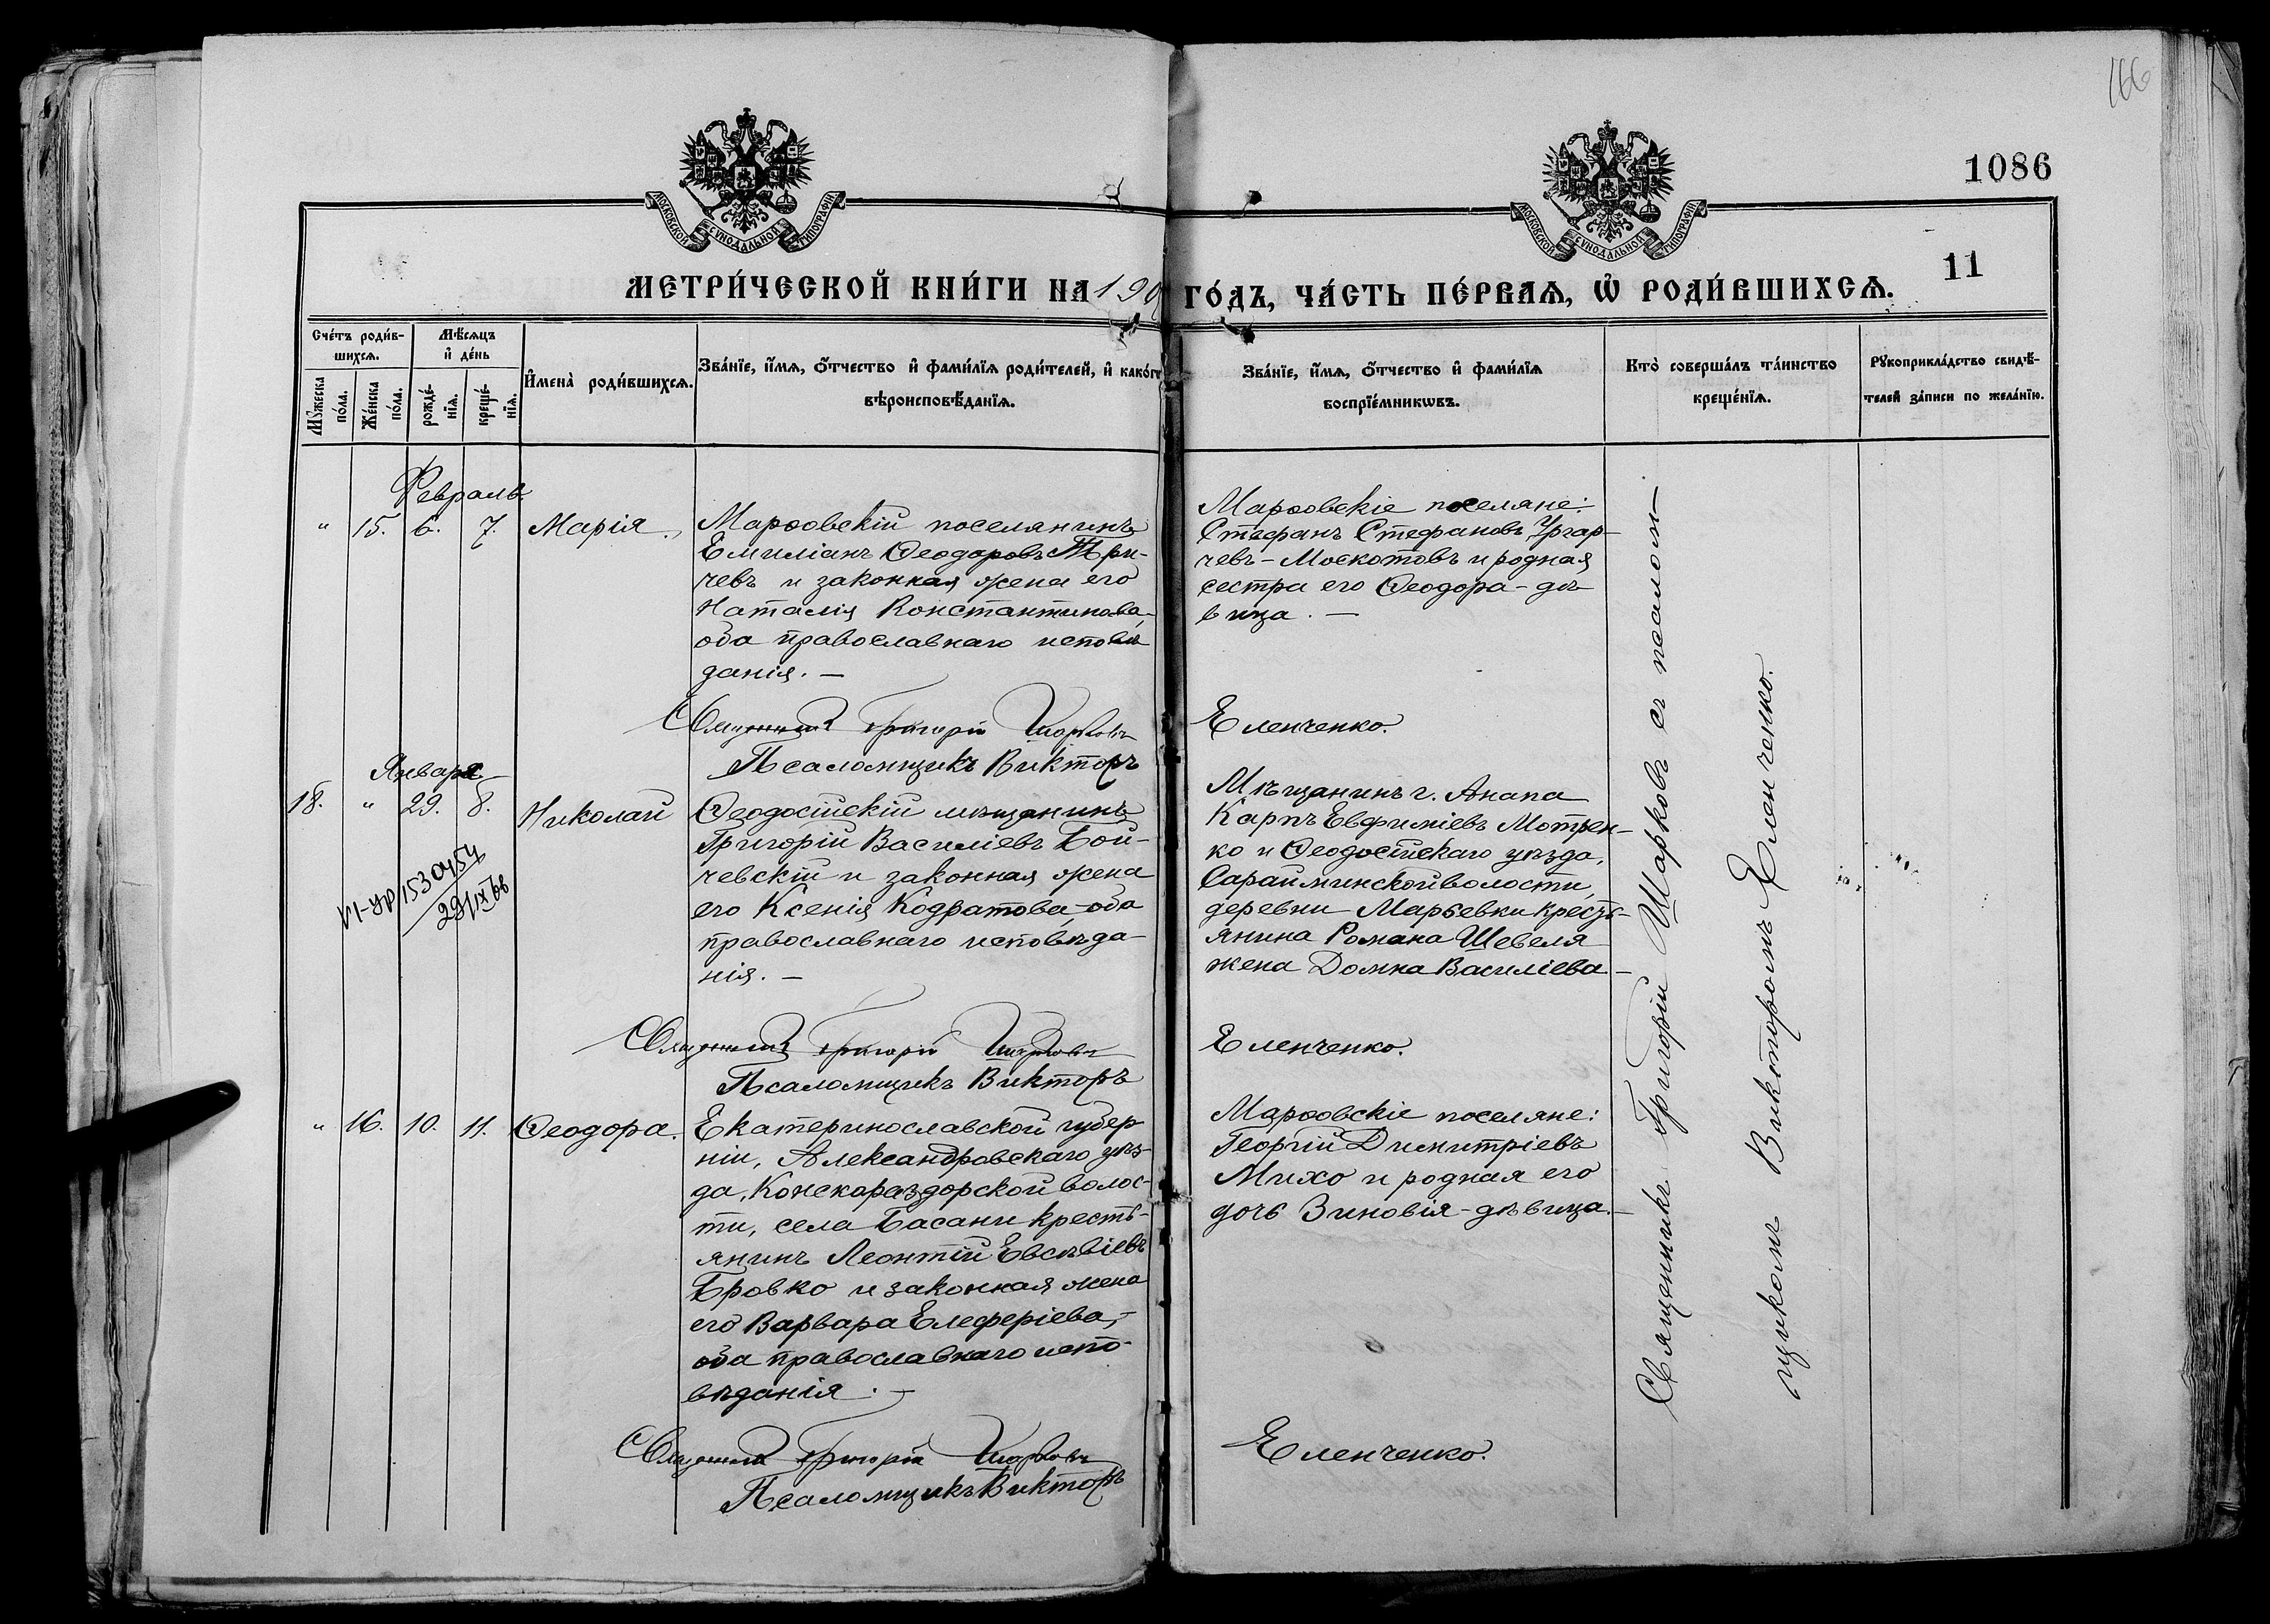 166
1086
11
МОСКОВСКОЙ СѴНОДАЛЬНОЙ ТИПОГРАФІИ
МОСКОВСКОЙ СѴНОДАЛЬНОЙ ТИПОГРАФІИ
МЕТРИ́ЧЕСКОЙ КНИ́ГИ НА 190
ГО́ДЪ, ЧА́СТЬ ПЕ́РВАѦ, Ѡ҆ РОДИ́ВШИХСѦ.
Сче́тъ роди́в-
шихсѧ.
Мѣ́сѧцъ
и҆ де́нь
Мꙋ́жеска
по́ла.
Же́нска
по́ла.
рожде́-
нїѧ.
креще́-
нїѧ.
И҆мена̀ роди́вшихсѧ.
Зва́нїе, и҆́мѧ, о҆́тчество и҆ фами́лїѧ роди́телей, и҆ како́гѡ
вѣроисповѣ́данїѧ.
Зва́нїе, и҆́мѧ, о҆́тчество и҆ фами́лїѧ
воспрїе́мникѡвъ.
Кто̀ соверша́лъ та́инство
креще́нїѧ.
Рꙋкоприкла́дство свидѣ́-
телей за́писи по жела́нїю.
Февраль
" 15. 6. 7. Марія.
Марѳовскій поселянинъ
Емиліанъ Ѳеодоровъ Три-
чевъ и законная жена его
Наталія Константинова,
оба православнаго исповѣ
данія. —
Священникъ Григорій Шарковъ
Псаломщикъ Викторъ
Марѳовскіе поселяне:
Стефанъ Стефановъ Ургар-
чевъ-Москотовъ и родная
сестра его Ѳеодора - дѣ
вица. —
Еленченко.
Января
18. " 29. 8. Николай
VI-УР 1530454
29/IX 68
Ѳеодосійскій мѣщанинъ
Григорій Василіевъ Бой-
чевскій и законная жена
его Ксенія Кодратова оба
православнаго исповѣда
нія. —
Священникъ Григорій Шарковъ
Псаломщикъ Викторъ
Мѣщанинъ г. Анапа
Карпъ Евфиміевъ Мотрен-
ко и Ѳеодосійскаго уѣзда,
Сарайминской волости,
деревни Марьевки кресть-
янина Романа Шевеля
жена Домна Василіева —
Еленченко.
" 16. 10. 11. Ѳеодора.
Екатеринославской губер
ніи, Александровскаго уѣз-
да, Конскораздорской волос-
ти, села Басани кресть-
янинъ Леонтій Евсѣвіевъ
Бровко и законная жена
его Варвара Елеферіева,-
оба православнаго испо-
вѣданія. —
Священникъ Григорій Шарковъ
Псаломщикъ Викторъ
Марѳовскіе поселяне:
Георгій Димитріевъ
Михо и родная его
дочь Зиновія - дѣвица. —
Еленченко.
Священникъ Григорій Шарковъ съ псалом-
щикомъ Викторомъ Еленченко.